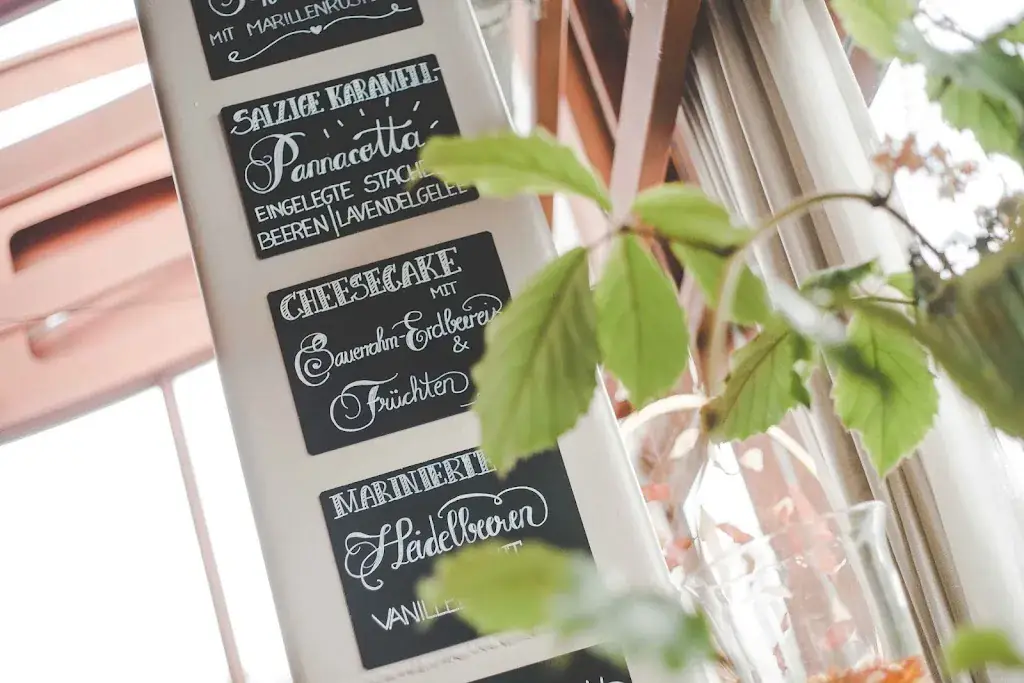 MIT MARILLENRÖSTER
SALZIGE KARAMELL-
Pannacotta
EINGELEGTE STACHEL
BEEREN|LAVENDELGELEE
CHEESECAKE
MIT
Sauerrahm-Erdbeereis
&
Früchten
MARINIERTE
Heidelbeeren
VANILLE